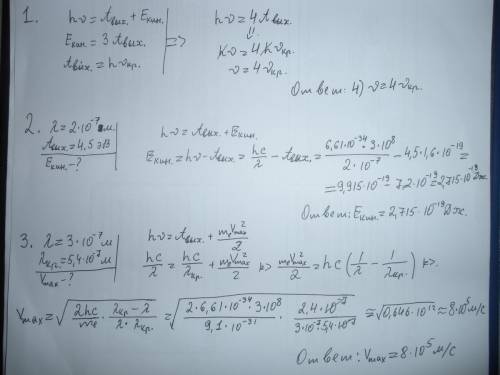 1. hν = Aвых. + Eкин.
Eкин. = 3 Aвых.
Aвых. = hνкр.
=>
hν = 4 Aвых.
⇓
hν = 4 hνкр.
ν = 4 νкр.
Ответ: 4) ν = 4 νкр.
2. λ = 2·10⁻⁷ м.
Aвых. = 4,5 эВ
Eкин. - ?
hν = Aвых. + Eкин.
Eкин. = hν - Aвых. = hc/λ - Aвых. = (6,61·10⁻³⁴·3·10⁸)/(2·10⁻⁷) - 4,5·1,6·10⁻¹⁹ =
= 9,915·10⁻¹⁹ - 7,2·10⁻¹⁹ = 2,715·10⁻¹⁹ Дж.
Ответ: Eкин. = 2,715·10⁻¹⁹ Дж.
3. λ = 3·10⁻⁷ м
λкр. = 5,4·10⁻⁷ м
Vmax - ?
hν = Aвых. + mₑVmax²/2
hc/λ = hc/λкр. + mₑVmax²/2 => mₑVmax²/2 = hc (1/λ - 1/λкр.) =>
Vmax = √(2hc/mₑ · (λкр. - λ)/(λ·λкр.)) = √((2·6,61·10⁻³⁴·3·10⁸)/(9,1·10⁻³¹) · (2,4·10⁻⁷)/(3·10⁻⁷·5,4·10⁻⁷)) ≈ √(0,646·10¹²) ≈ 8·10⁵ м/с
Ответ: Vmax = 8·10⁵ м/с